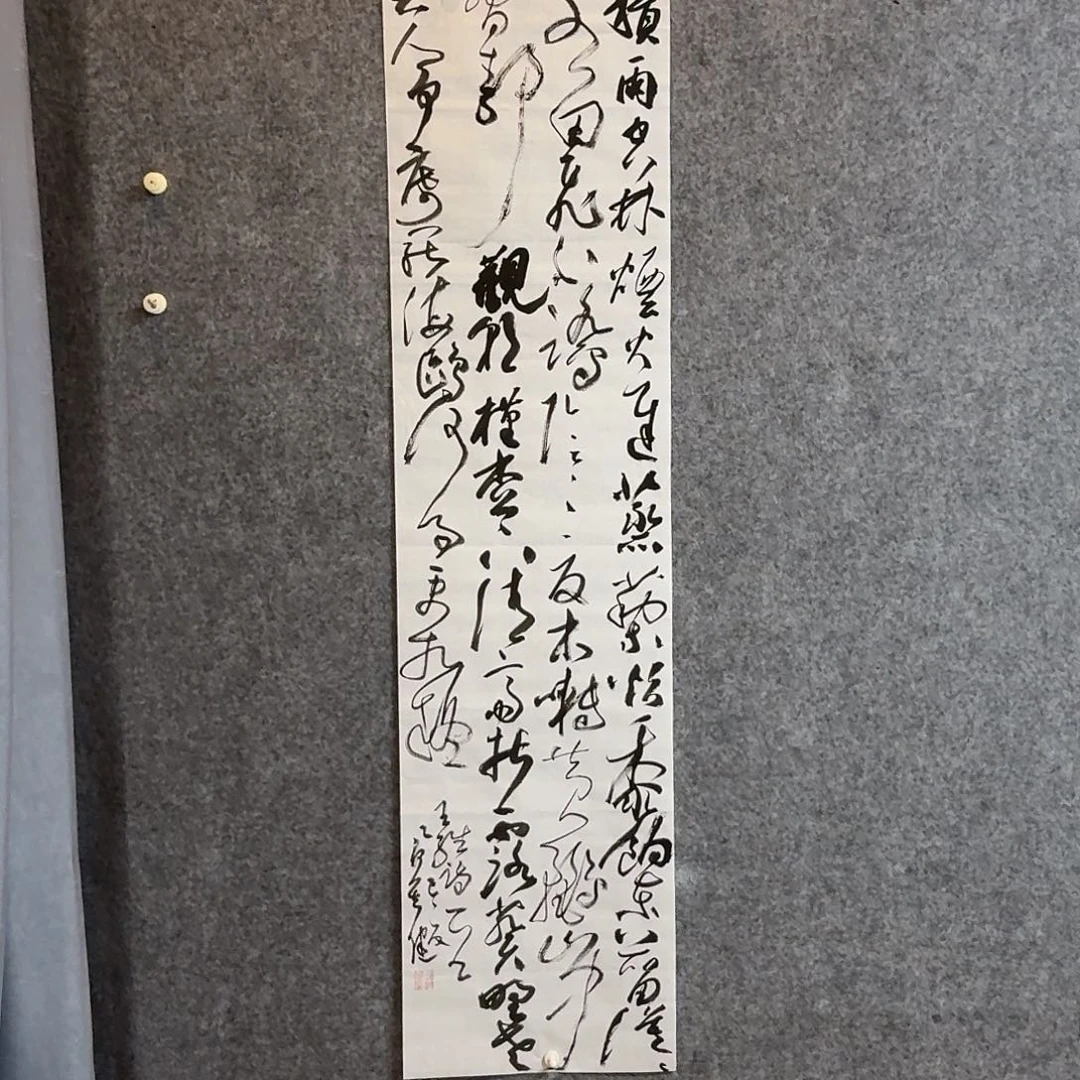 積雨空林煙火遲蒸藜炊黍餉東菑漠々
水田飛白鷺陰々夏木囀黄鸝山中
習靜觀朝槿松下清齋折露葵野老
與人爭席罷海鷗何事更相疑
王維詩一首